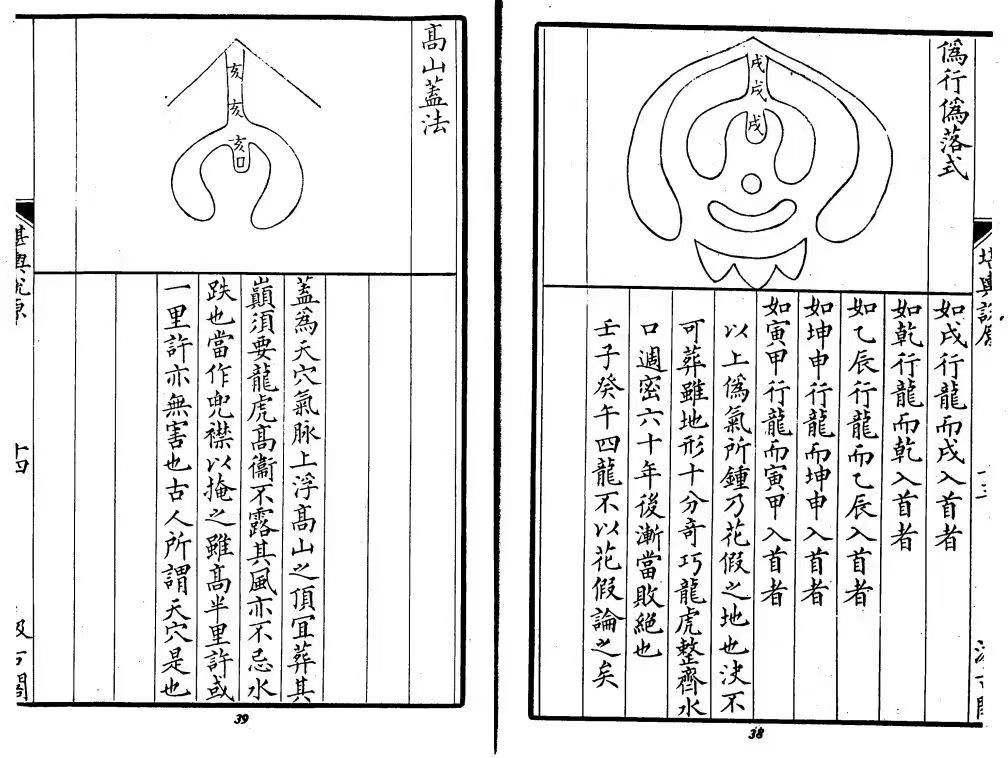 偽行偽落式
戌
戌
戌
如戌行龍而戌入首者
如乾行龍而乾入首者
如乙辰行龍而乙辰入首者
如坤申行龍而坤申入首者
如寅甲行龍而寅甲入首者
以上偽氣所鍾乃花假之地也決不
可葬雖地形十分奇巧龍虎整齊水
口週密六十年後漸當敗絕也
壬子癸午四龍不以花假論之矣
38
高山蓋法
亥
亥
亥
蓋為天穴氣脉上浮高山之頂宜葬其
巔須要龍虎高衞不露其風亦不忌水
跌也當作兜襟以掩之雖高半里許或
一里許亦無害也古人所謂天穴是也
十四
39